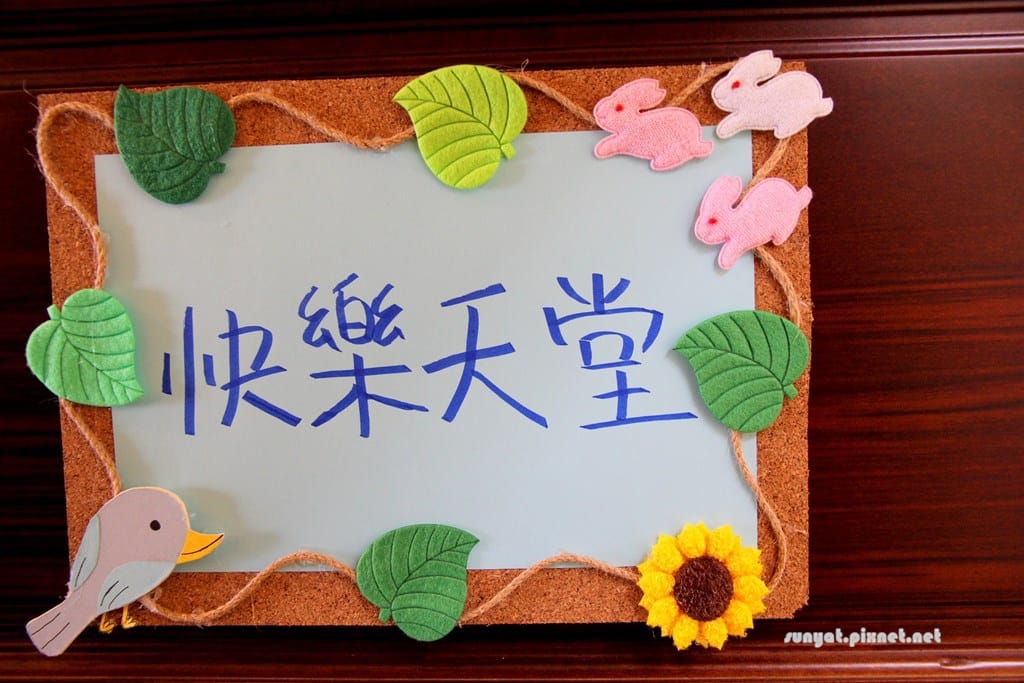 快樂天堂
sunyat.pixnet.net